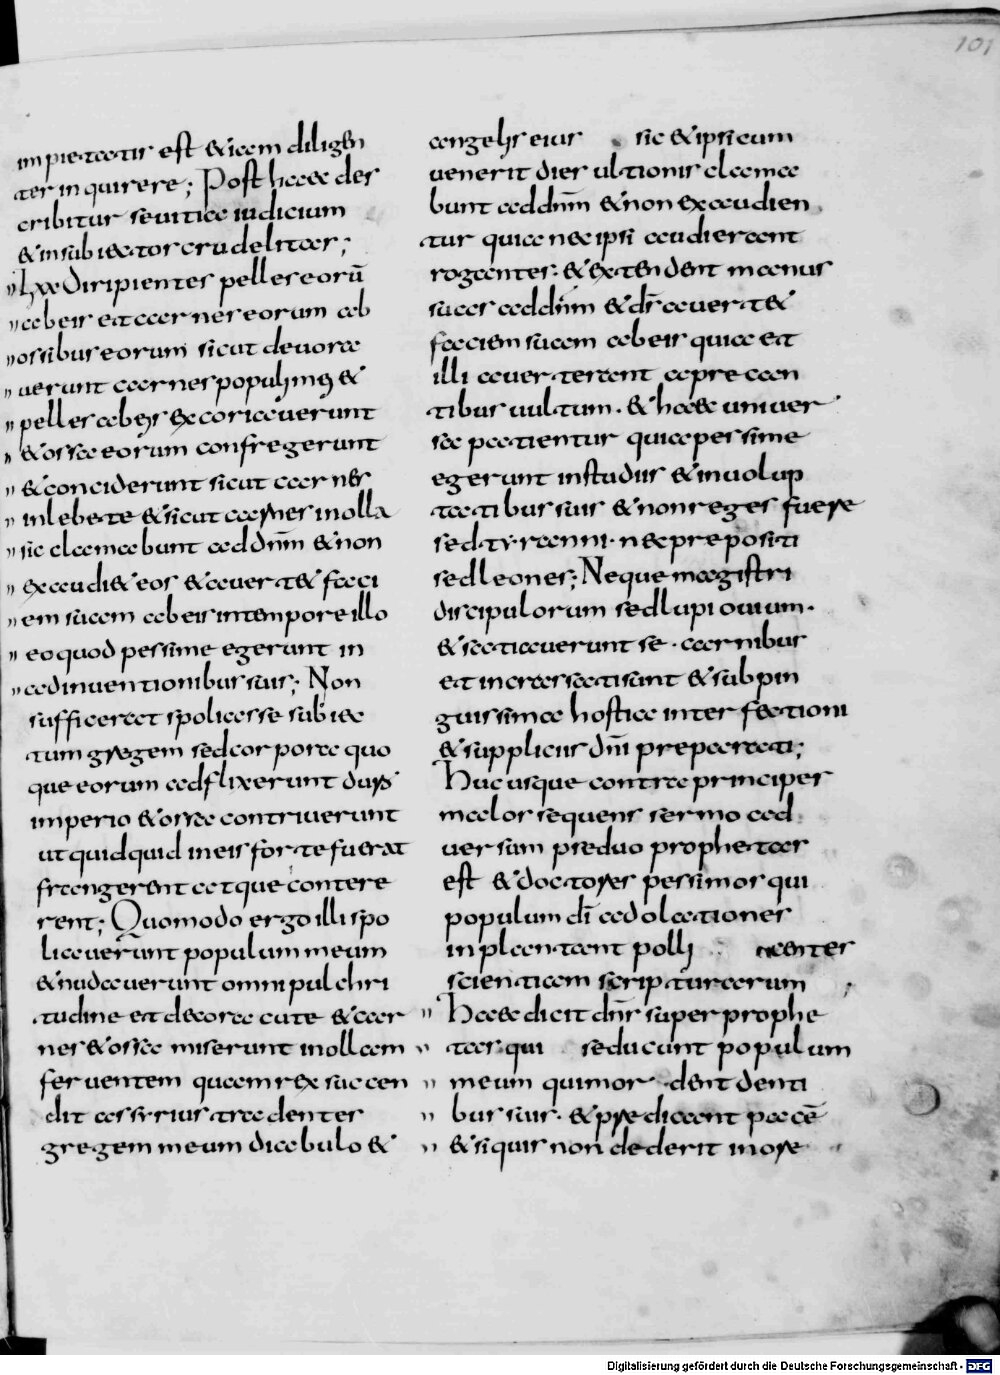 101
impietatis est & iam diligen
ter inquirere; Post haec des
cribitur seuitiae iudicium
& insubiectos crudelitas;
LXX Diripientes pelles eorū
ab eis et carnes eorum ab
ossibus eorum sicut deuora
uerunt carnes populi mei &
pelles ab eis excoriauerunt
& ossa eorum confregerunt
& conciderunt sicut carnes
in lebete & sicut carnes in olla
sic clamabunt ad dn̄m & non
exaudi& eos & auert& faci
em suam ab eis in tempore illo
eo quod pessime egerunt in
adinuentionibus suis; Non
sufficeret spoliasse subiec
tum gregem sed corpora quo
que eorum adflixerunt duris
imperio & ossa contriuerunt
ut quidquid in eis forte fuerat
frangerent atque contere
rent; Quomodo ergo illi spo
liauerunt populum meum
& nudauerunt omni pulchri
tudine et decora cute & car
nes & ossa miserunt in ollam
feruentem quam rex succen
dit assyrius tradentes
gregem meum diabulo &
angelis eius sic & ipsi cum
uenerit dies ultionis clama
bunt ad dn̄m & non exaudien
tur quia nec ipsi audierant
rogantes. & extendent manus
suas ad dn̄m & dn̄s auert&
faciem suam ab eis quia et
illi auerterant a precan
tibus uultum. & haec uniuer
sa patientur quia pessime
egerunt in studiis & in uolup
tatibus suis & non reges fuere
sed tyranni. nec prepositi
sed leones; Neque magistri
discipulorum sed lupi ouium.
& satiauerunt se. carnibus
et incrassati sunt & sub pin
guissima hostia interfectioni
& suppliciis dn̄i preparati;
Hucusque contra principes
malos sequens sermo ad
uersum pseudo prophetas
est & doctores pessimos qui
populum dī adolationes
inplantant polli centes
scientiam scripturarum
Haec dicit dn̄s super prophe
tas qui seducunt populum
meum qui mordent denti
bus suis. & predicant pacē
& si quis non dederit in ore
Digitalisierung gefördert durch die Deutsche Forschungsgemeinschaft - DFG